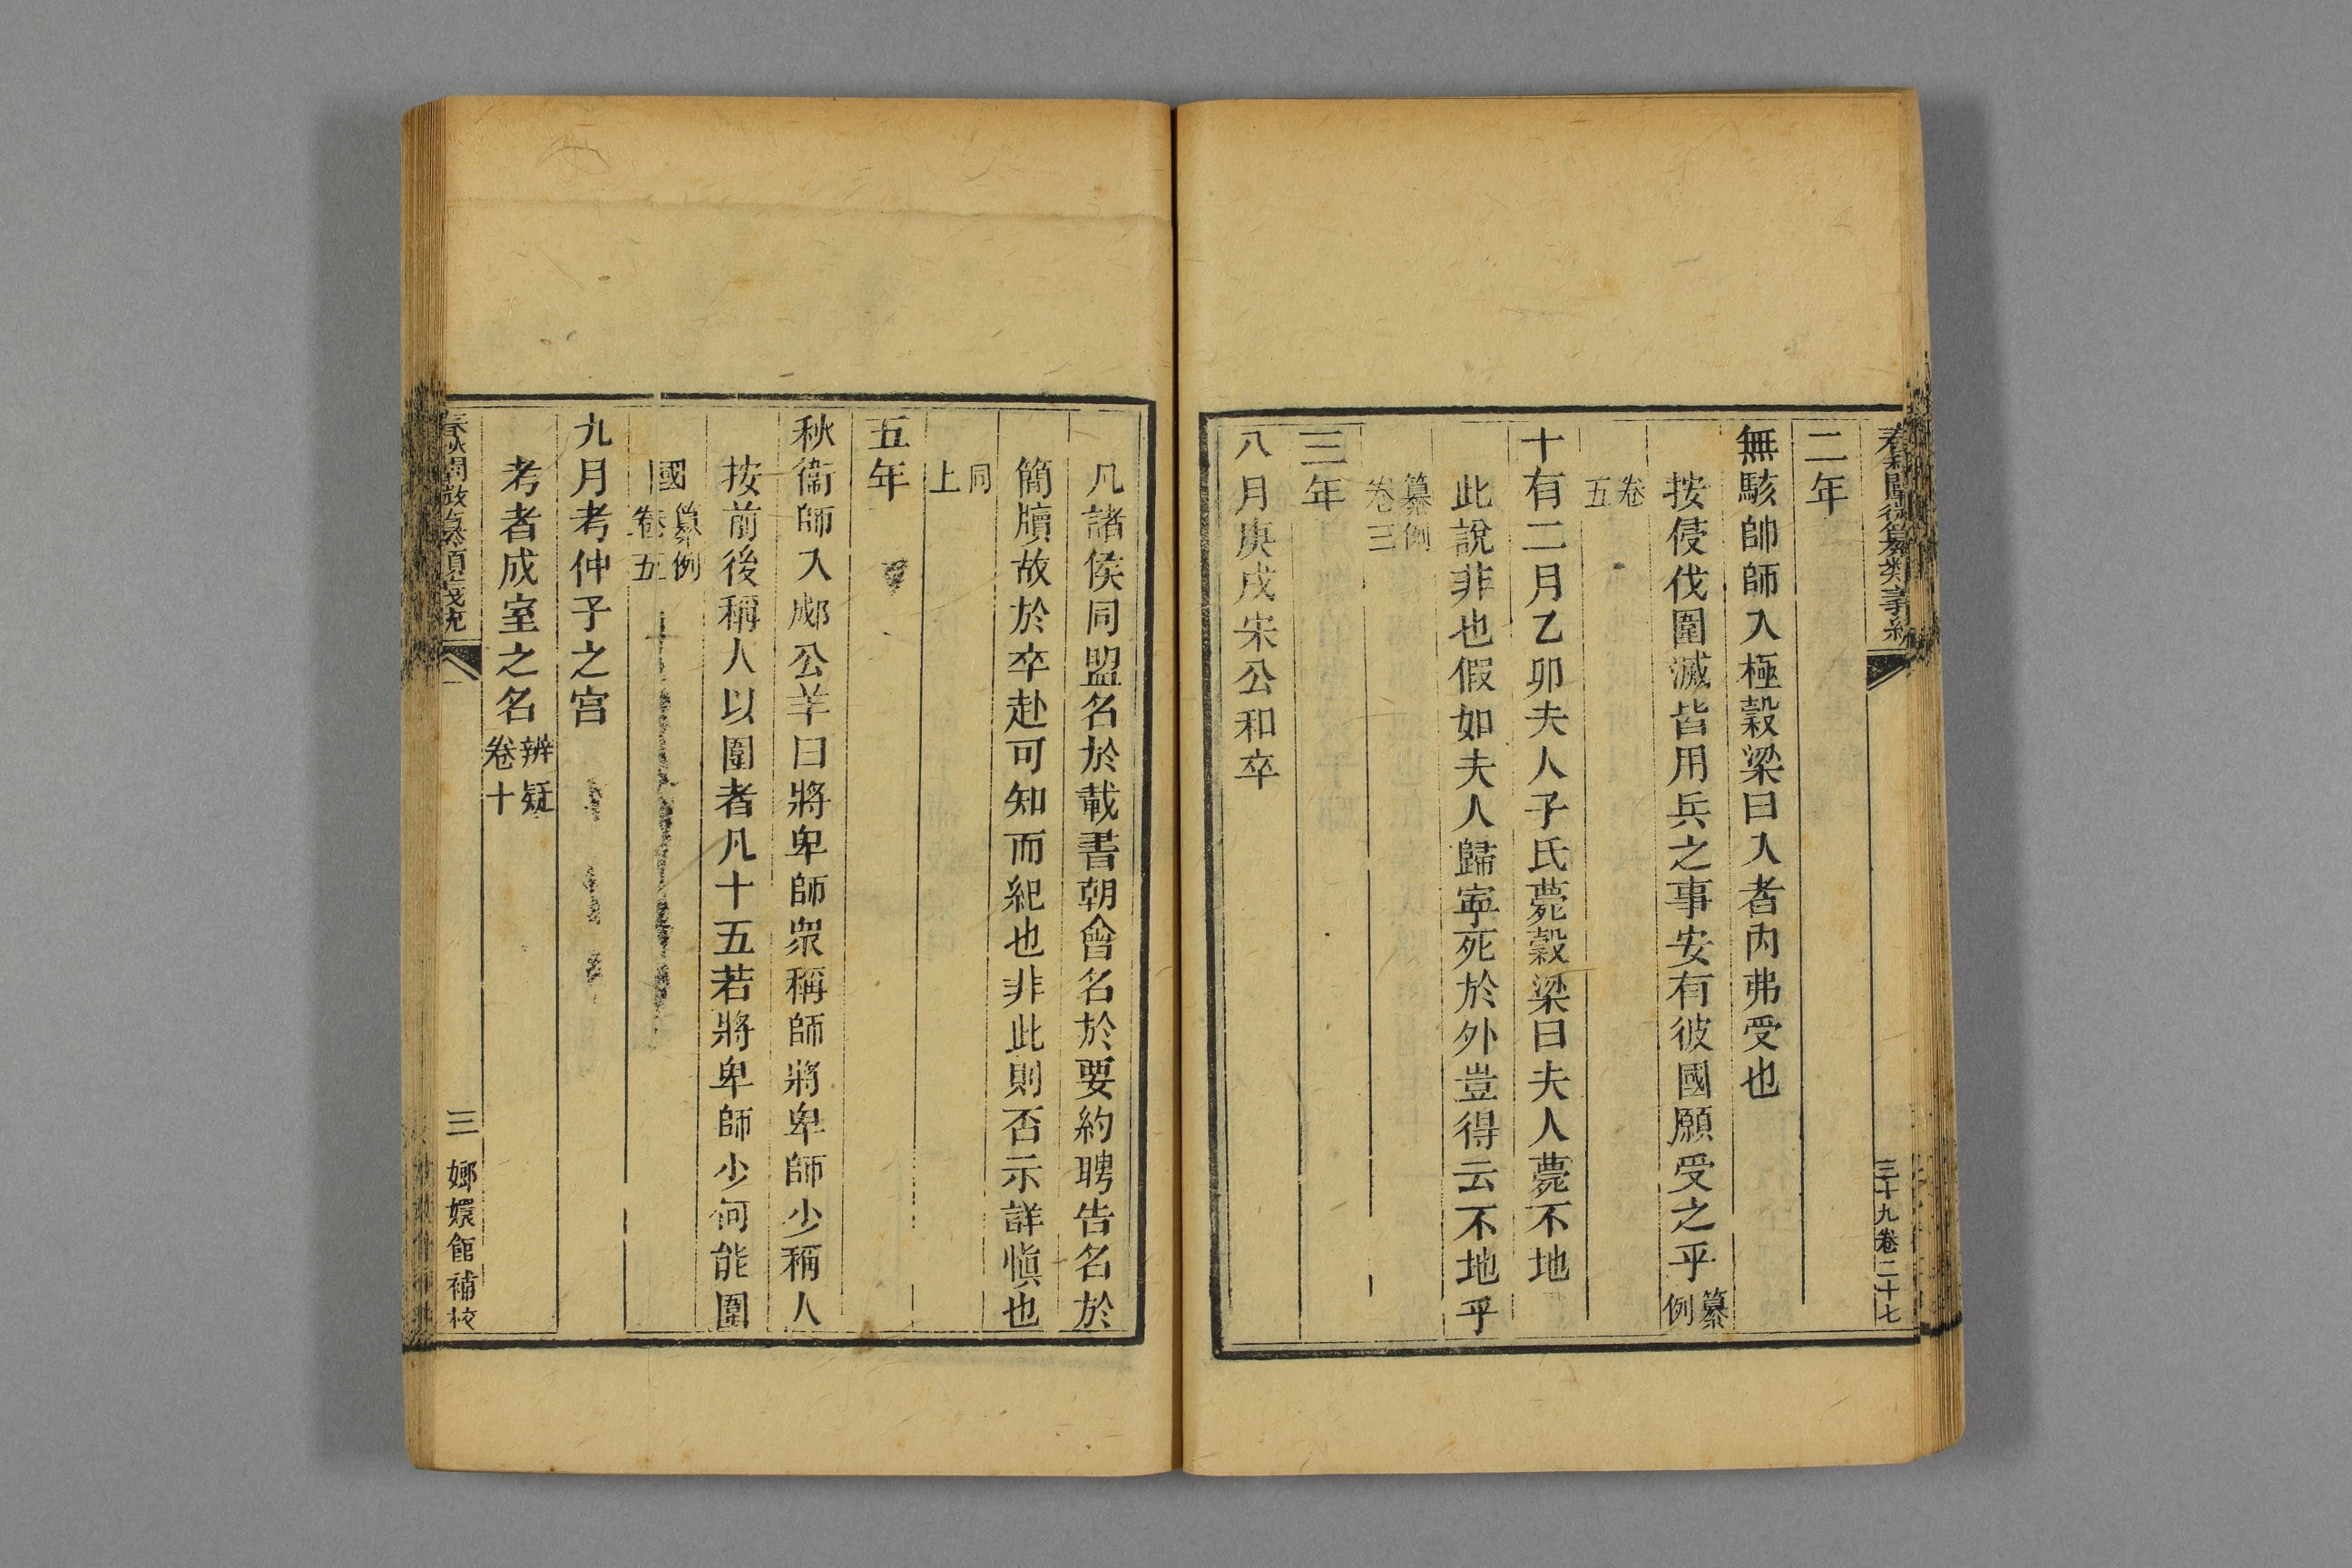 春秋闡微纂類義統
三十九卷二十七
二年
無駭帥師入極穀梁曰入者內弗受也
按侵伐圍滅皆用兵之事安有彼國願受之乎纂例
卷五
十有二月乙卯夫人子氏薨穀梁曰夫人薨不地
此說非也假如夫人歸寧死於外豈得云不地乎
纂例卷三
三年
八月庚戌宋公和卒
凡諸侯同盟名於載書朝會名於要約聘告名於
簡牘故於卒赴可知而紀也非此則否示詳愼也
同上
五年
秋衞師入郕公羊曰將卑師眾稱師將卑師少稱人
按前後稱人以圍者凡十五若將卑師少何能圍
國纂例卷五
九月考仲子之宮
考者成室之名辨疑卷十
三
嫏嬛館補校